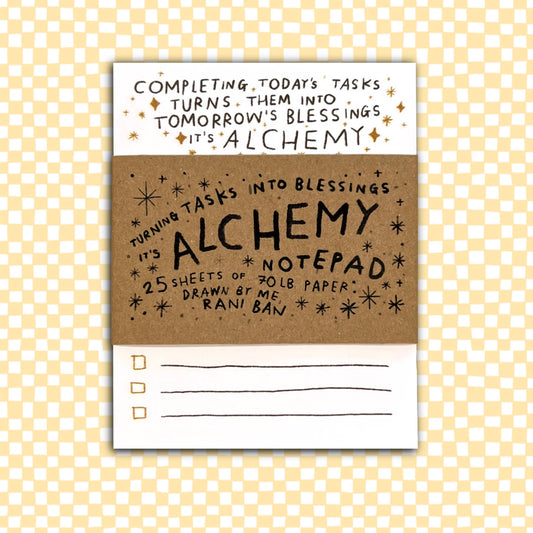 COMPLETING TODAY'S TASKS
TURNS THEM INTO
TOMORROW'S BLESSINGS
IT'S ALCHEMY
TURNING TASKS INTO BLESSINGS
IT'S ALCHEMY
NOTEPAD
25 SHEETS OF 70LB PAPER
DRAWN BY ME,
RANI BAN